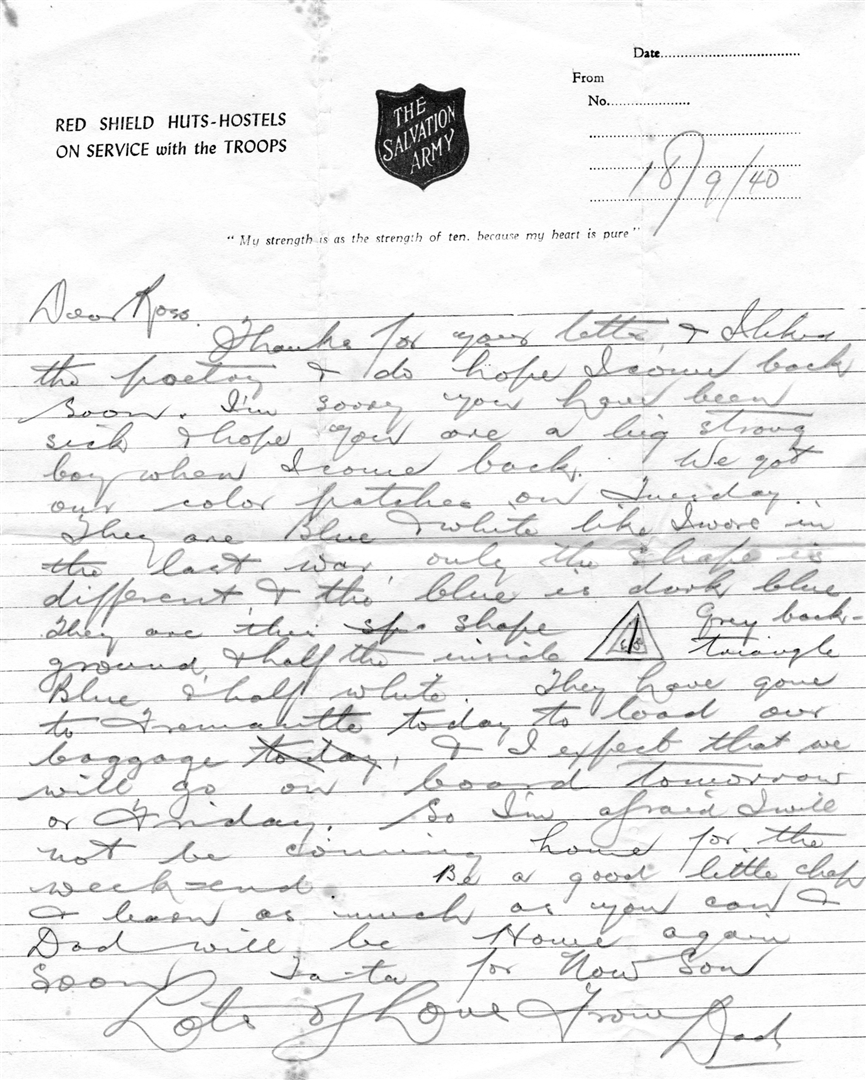 Date
From
No.
RED SHIELD HUTS-HOSTELS
ON SERVICE with the TROOPS
THE
SALVATION
ARMY
18/9/40
"My strength is as the strength of ten, because my heart is pure"
Dear Ross.
Thanks for your letter, & I liked
the poetry & do hope I come back
soon. I'm sorry you have been
sick & hope you are a big strong
boy when I come back. We got
our color patches on Tuesday.
They are Blue & white like I wore in
the last war, only the shape is
different, & the blue is dark blue
They are this shape Grey back-
ground, & half the inside triangle
Blue & half white. They have gone
to Fremantle today to load our
baggage today, & I expect that we
will go on board tomorrow
or Friday. So I'm afraid I will
not be coming home for the
week-end Be a good little chap
& learn as much as you can &
Dad will be Home again
soon Ta-ta for Now Son
Lots of Love From
Dad